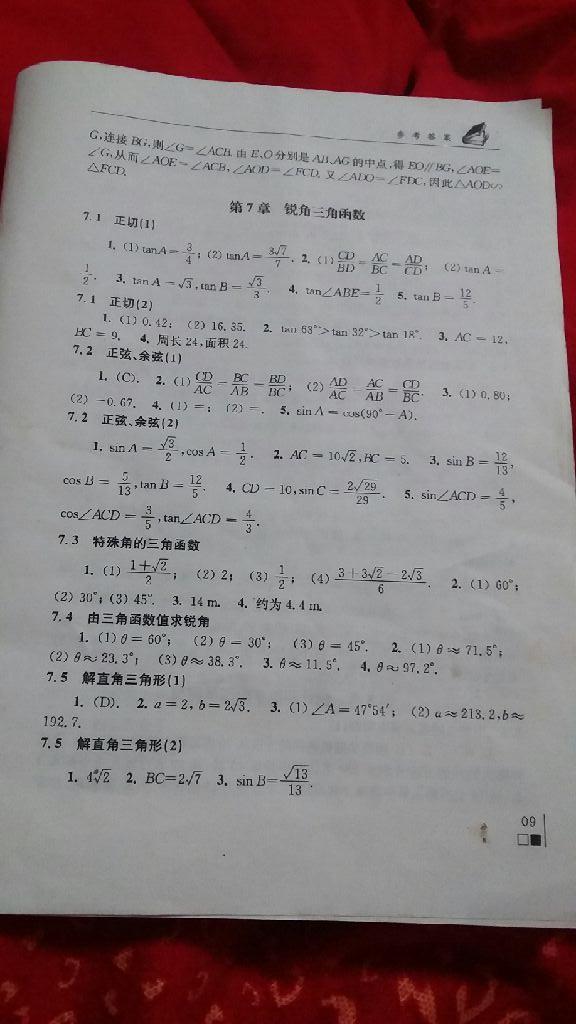 参考答案
G,连接 BG,则∠G=∠ACB. 由 E、O 分别是 AB、AG 的中点,得 EO∥BG,∠AOE=
∠G,从而∠AOE=∠ACB,∠AOD=∠FCD. 又∠ADO=∠FDC,因此△AOD∽
△FCD.
第 7 章 锐角三角函数
7.1 正切(1)
1. (1) tan A = 3/4; (2) tan A = 3√7/7. 2. (1) CD/BD = AC/BC = AD/CD; (2) tan A =
1/2. 3. tan A = √3, tan B = √3/3. 4. tan∠ABE = 1/2 5. tan B = 12/5.
7.1 正切(2)
1. (1) 0.42; (2) 16.35. 2. tan 63°>tan 32°>tan 18°. 3. AC = 12,
BC = 9. 4. 周长 24,面积 24.
7.2 正弦、余弦(1)
1. (C). 2. (1) CD/AC = BC/AB = BD/BC; (2) AD/AC = AC/AB = CD/BC. 3. (1) 0.80;
(2) -0.67. 4. (1) =; (2) =. 5. sin A = cos(90° - A).
7.2 正弦、余弦(2)
1. sin A = √3/2, cos A = 1/2. 2. AC = 10√2, BC = 5. 3. sin B = 12/13,
cos B = 5/13, tan B = 12/5. 4. CD = 10, sin C = 2√29/29. 5. sin∠ACD = 4/5,
cos∠ACD = 3/5, tan∠ACD = 4/3.
7.3 特殊角的三角函数
1. (1) 1+√2/2; (2) 2; (3) 1/2; (4) 3+3√2-2√3/6. 2. (1) 60°;
(2) 30°; (3) 45°. 3. 14 m. 4. 约为 4.4 m.
7.4 由三角函数值求锐角
1. (1) θ = 60°; (2) θ = 30°; (3) θ = 45°. 2. (1) θ ≈ 71.5°;
(2) θ ≈ 23.3°; (3) θ ≈ 38.3°. 3. θ ≈ 11.5°. 4. θ ≈ 97.2°.
7.5 解直角三角形(1)
1. (D). 2. a = 2, b = 2√3. 3. (1) ∠A = 47°54′; (2) a ≈ 213.2, b ≈
192.7.
7.5 解直角三角形(2)
1. 4√2 2. BC=2√7 3. sin B=√13/13.
09